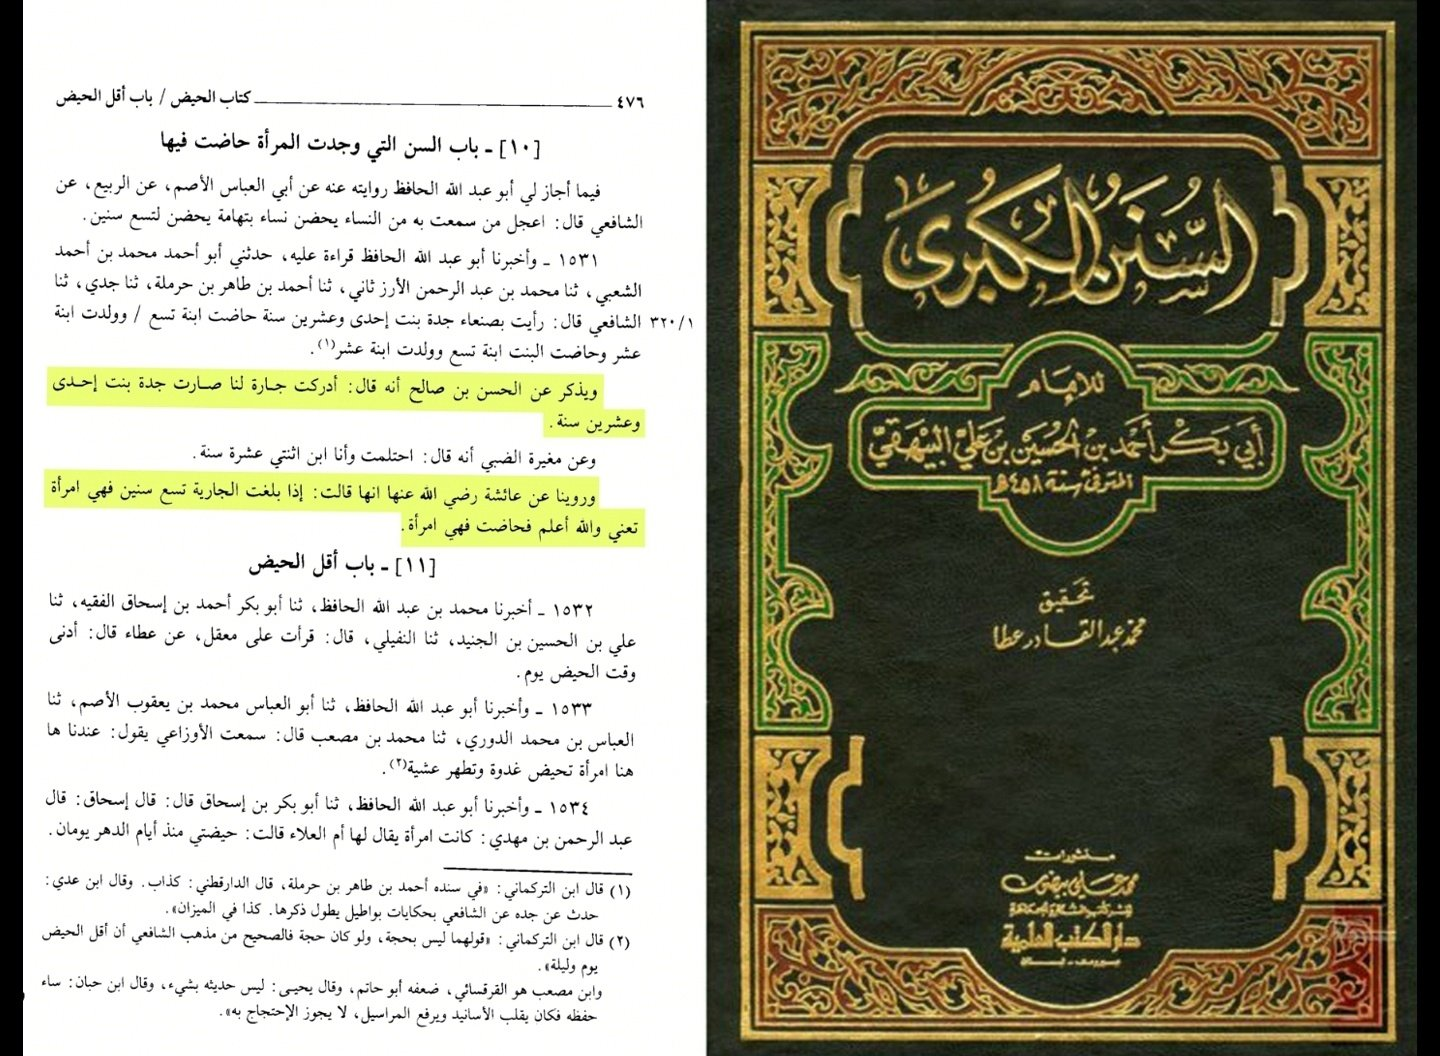 ٤٧٦ ـــــ كتاب الحيض / باب أقل الحيض
[١٠] ـ باب السن التي وجدت المرأة حاضت فيها
فيما أجاز لي أبو عبد الله الحافظ روايته عنه عن أبي العباس الأصم، عن الربيع، عن
الشافعي قال: اعجل من سمعت به من النساء يحضن نساء بتهامة يحضن لتسع سنين.
١٥٣١ ـ وأخبرنا أبو عبد الله الحافظ قراءة عليه، حدثني أبو أحمد محمد بن أحمد
الشعبي، ثنا محمد بن عبد الرحمن الأرز ثاني، ثنا أحمد بن طاهر بن حرملة، ثنا جدي، ثنا
٣٢٠/١ الشافعي قال: رأيت بصنعاء جدة بنت إحدى وعشرين سنة حاضت ابنة تسع / وولدت ابنة
عشر وحاضت البنت ابنة تسع وولدت ابنة عشر(١).
ويذكر عن الحسن بن صالح أنه قال: أدركت جارة لنا صارت جدة بنت إحدى
وعشرين سنة.
وعن مغيرة الضبي أنه قال: احتلمت وأنا ابن اثنتي عشرة سنة.
وروينا عن عائشة رضي الله عنها انها قالت: إذا بلغت الجارية تسع سنين فهي امرأة
تعني والله أعلم فحاضت فهي امرأة.
[١١] ـ باب أقل الحيض
١٥٣٢ ـ أخبرنا محمد بن عبد الله الحافظ، ثنا أبو بكر أحمد بن إسحاق الفقيه، ثنا
علي بن الحسين بن الجنيد، ثنا النفيلي، قال: قرأت على معقل، عن عطاء قال: أدنى
وقت الحيض يوم.
١٥٣٣ ـ وأخبرنا أبو عبد الله الحافظ، ثنا أبو العباس محمد بن يعقوب الأصم، ثنا
العباس بن محمد الدوري، ثنا محمد بن مصعب قال: سمعت الأوزاعي يقول: عندنا ها
هنا امرأة تحيض غدوة وتطهر عشية(٢).
١٥٣٤ ـ وأخبرنا أبو عبد الله الحافظ، ثنا أبو بكر بن إسحاق قال: قال إسحاق: قال
عبد الرحمن بن مهدي: كانت امرأة يقال لها أم العلاء قالت: حيضتي منذ أيام الدهر يومان.
(١) قال ابن التركماني: «في سنده أحمد بن طاهر بن حرملة، قال الدارقطني: كذاب. وقال ابن عدي:
حدث عن جده عن الشافعي بحكايات بواطيل يطول ذكرها. كذا في الميزان».
(٢) قال ابن التركماني: «قولهما ليس بحجة، ولو كان حجة فالصحيح من مذهب الشافعي أن أقل الحيض
يوم وليلة».
وابن مصعب هو القرقسائي، ضعفه أبو حاتم، وقال يحيى: ليس حديثه بشيء، وقال ابن حبان: ساء
حفظه فكان يقلب الأسانيد ويرفع المراسيل، لا يجوز الإحتجاج به».
السُّنَنُ الكُبرَى
للإمام
أبي بكر أحمد بن الحسين بن علي البيهقي
المتوفى سنة ٤٥٨هـ
تحقيق
محمد عبد القادر عطا
منشورات
محمد علي بيضون
لنشر كتب السنة والجماعة
دار الكتب العلمية
بيروت - لبنان